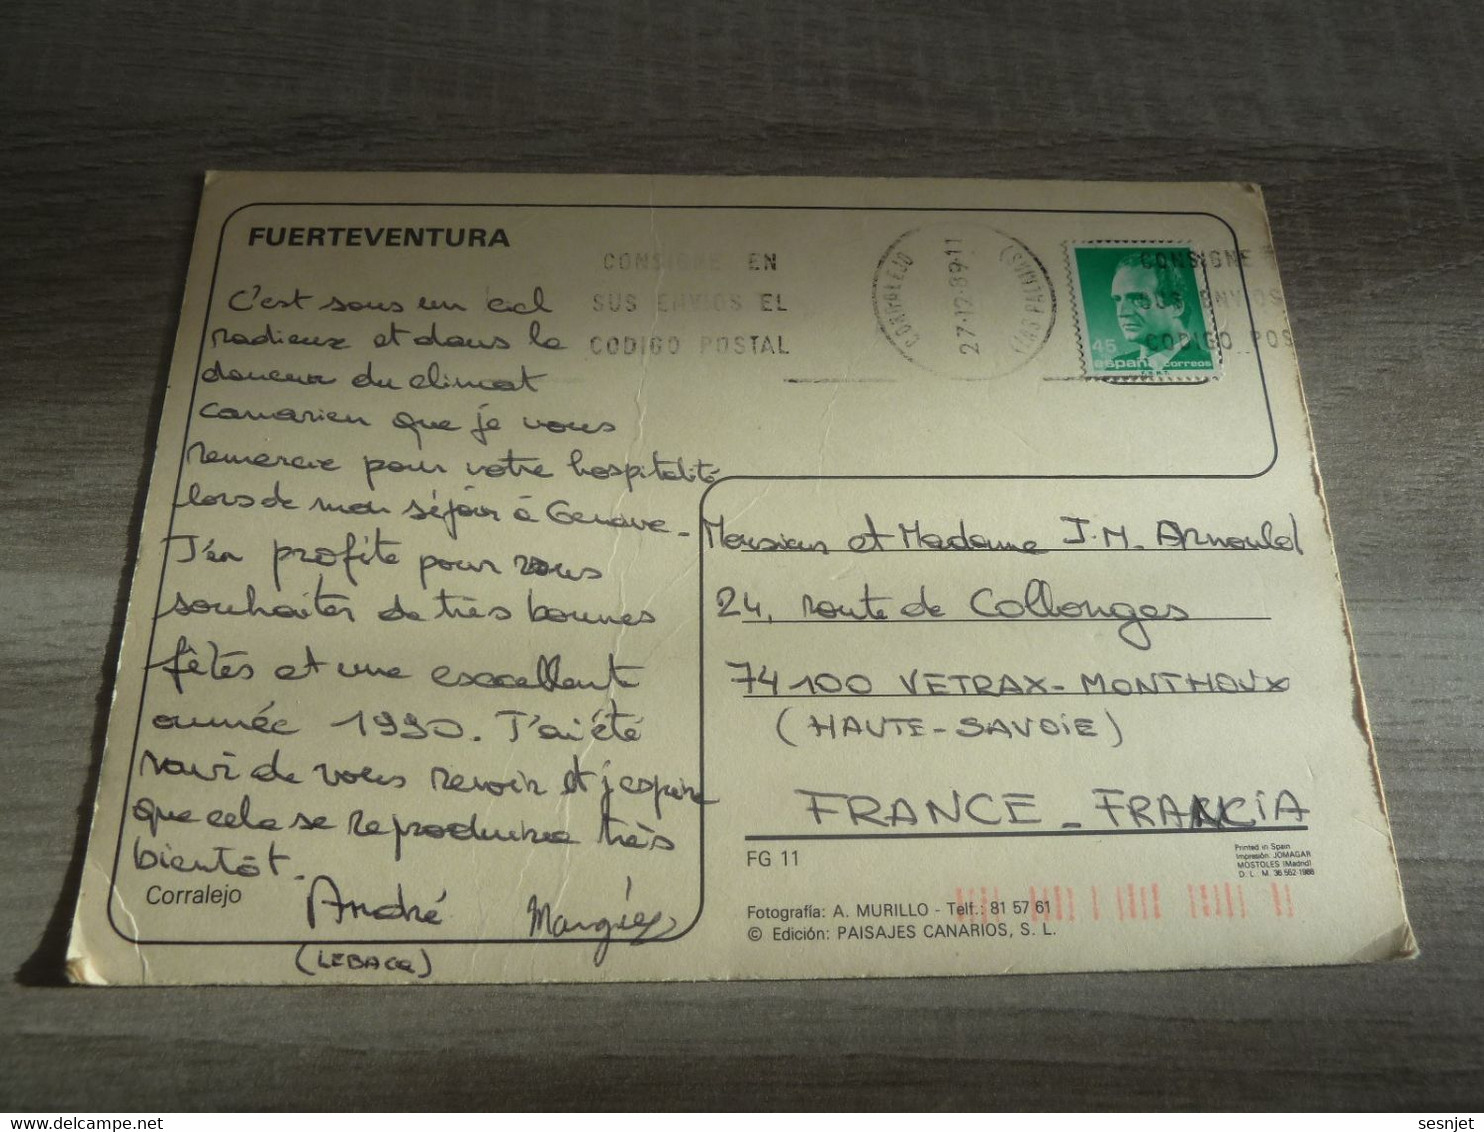 FUERTEVENTURA
CONSIGNE EN
SUS ENVIOS EL
CODIGO POSTAL
CORRALEJO
27.12.89.11
(LAS PALMAS)
45
españa correos
CONSIGNE
SUS ENVIOS
CODIGO POS
C'est sous un ciel
radieux et dans la
douceur du climat
canarien que je vous
remercie pour votre hospitalité
lors de mon séjour à Genève.
J'en profite pour vous
souhaiter de très bonnes
fêtes et une excellente
année 1990. J'ai été
ravi de vous revoir et j'espère
que cela se reproduira très
bientôt.
André
(LEBACQ)
Corralejo
Monsieur et Madame J.M. Arnould
24, route de Collonges
74100 VETRAX-MONTHOUX
(HAUTE-SAVOIE)
FRANCE - FRANCIA
FG 11
Printed in Spain
Impresión: JOMAGAR
MOSTOLES (Madrid)
D. L. M. 36.562-1988
Fotografía: A. MURILLO - Telf.: 81 57 61
© Edición: PAISAJES CANARIOS, S. L.
sesnjet